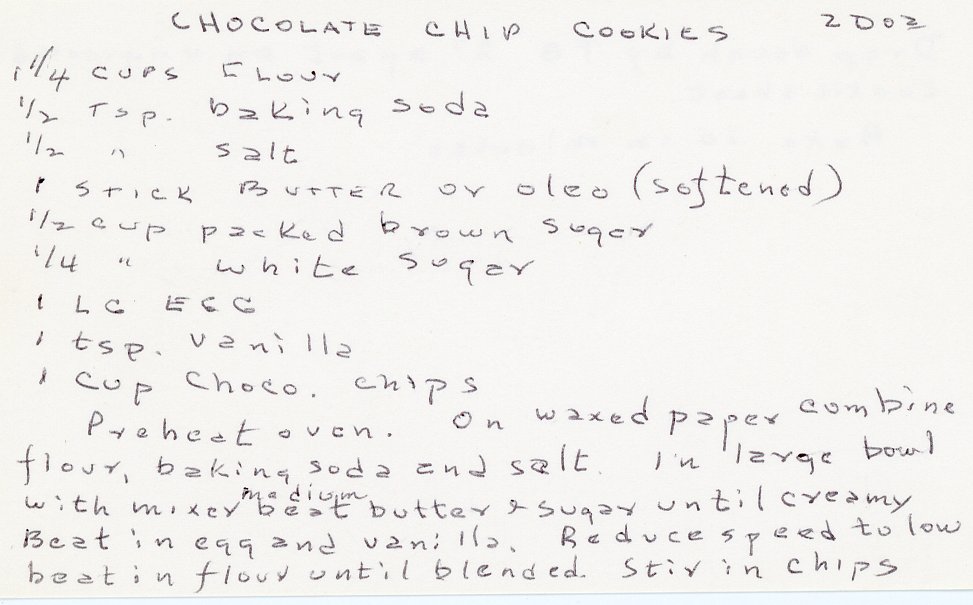 CHOCOLATE CHIP COOKIES 2002
1 1/4 CUPS FLOUR
1/2 Tsp. baking soda
1/2 " salt
1 STICK BUTTER or oleo (softened)
1/2 cup packed brown sugar
1/4 " white sugar
1 LG EGG
1 tsp. vanilla
1 Cup Choco. chips
Preheat oven. On waxed paper combine
flour, baking soda and salt. In large bowl
with mixer medium beat butter & sugar until creamy
Beat in egg and vanilla. Reduce speed to low
beat in flour until blended. Stir in chips